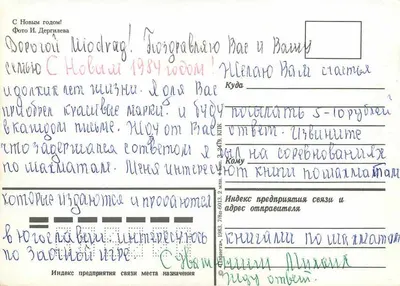 С Новым годом!
Фото И. Дергилева
Дорогой Miodrag! Поздравляю Вас и Вашу
семью С Новым 1984 годом! Желаю Вам счастья
и долгих лет жизни. Я для Вас
Куда
приобрел красивые марки. и буду посылать 5-10 рублей
в каждом письме. Жду от Вас ответ. Извините
что задержался с ответом я был на соревнованиях
Кому
по шахматам. Меня интересуют книги по шахматам
которые издаются и продаются
Индекс предприятия связи и
адрес отправителя
в Югославии. интересуюсь книгами по шахматам
по заочной игре.
С Уважением
Жду ответ.
Индекс предприятия связи места назначения